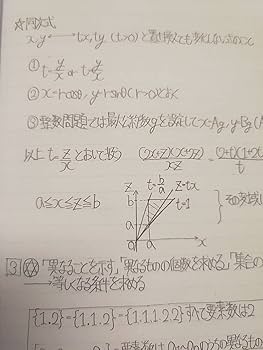 ☆同次式
x,y ⟷ tx,ty (t>0)と置き換えても変化しない式のこと
① t=y/x or t=x/y
② x=rcosθ,y=rsinθ(r>0)とおく
③ 整数問題では最大公約数gを設定してx=Ag,y=Bg(A
以上 t=z/x とおいて扱う (2x+z)(x+2z)/xz = (2+t)(1+2t)/t
a≤x≤z≤b
z t=b/a z=tx
b
t=1
a
a b x
その変域に
[3]☆「異なることを示す」「異なるものの個数を求める」「集合の
→等しくなる条件を求める
{1.2}={1.1.2}={1.1.1.2.2}すべて要素数は2